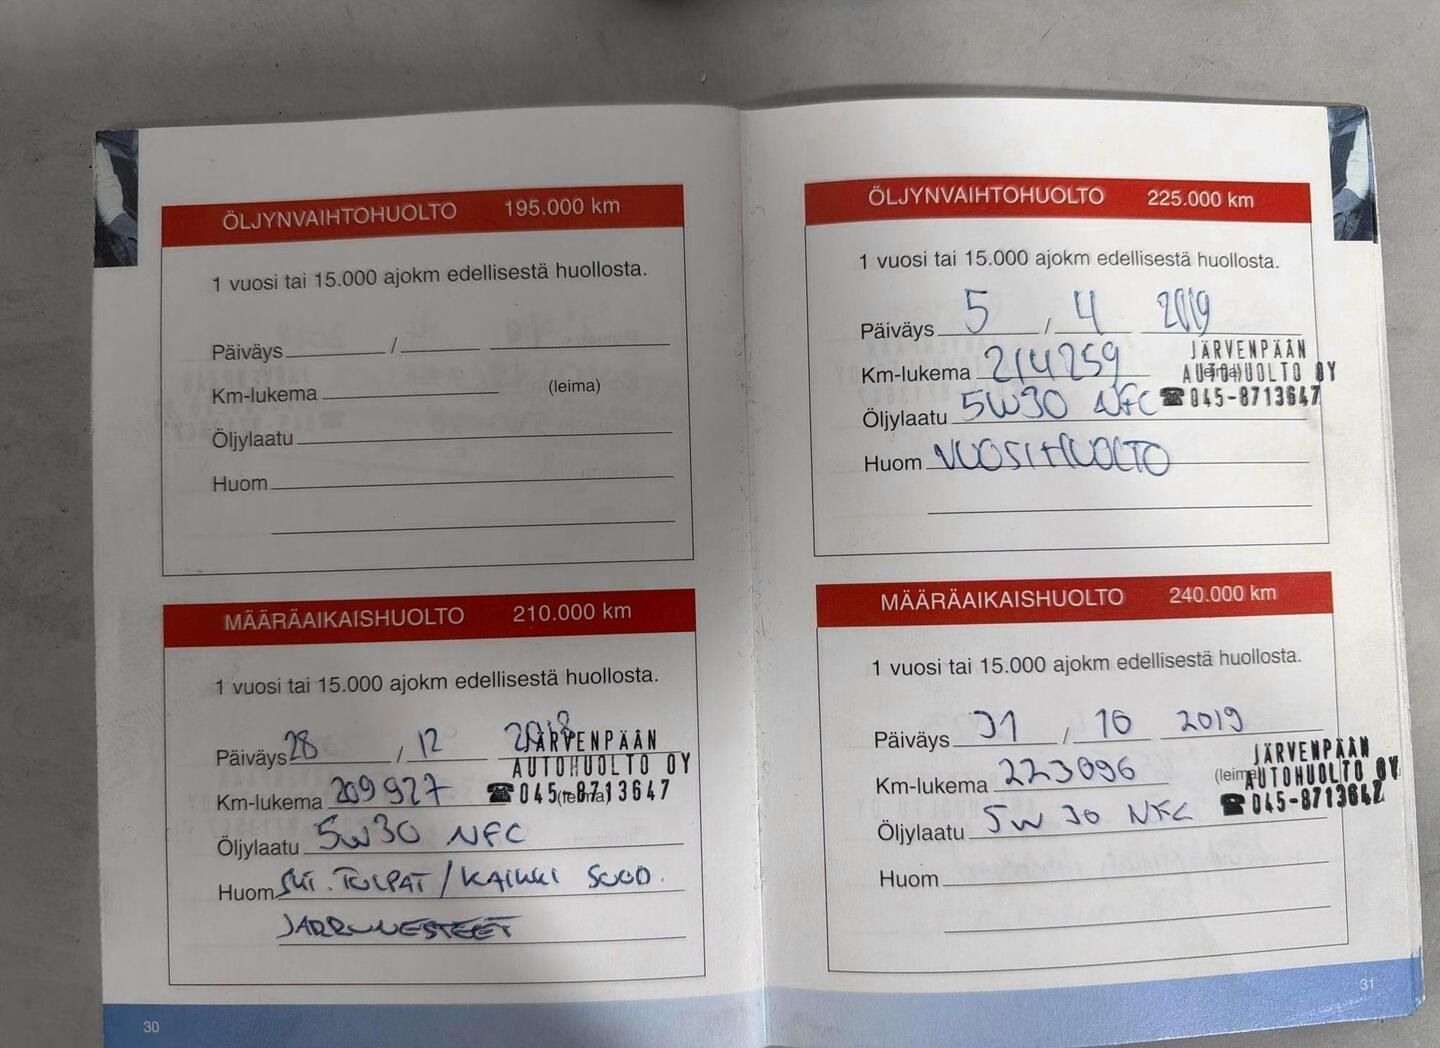 ÖLJYNVAIHTOHUOLTO 195.000 km
1 vuosi tai 15.000 ajokm edellisestä huollosta.
Päiväys / 
Km-lukema (leima)
Öljylaatu
Huom
MÄÄRÄAIKAISHUOLTO 210.000 km
1 vuosi tai 15.000 ajokm edellisestä huollosta.
Päiväys 28 / 12 2018 JÄRVENPÄÄN
AUTOHUOLTO OY
Km-lukema 209927 (leima) ☎045-8713647
Öljylaatu 5W30 NFC
Huom SYT. TULPAT / KAIKKI SUOD.
JARRUNESTEET
30
ÖLJYNVAIHTOHUOLTO 225.000 km
1 vuosi tai 15.000 ajokm edellisestä huollosta.
Päiväys 5 / 4 2019
JÄRVENPÄÄN
Km-lukema 214259 (leima) AUTOHUOLTO OY
Öljylaatu 5W30 NFC ☎045-8713647
Huom VUOSIHUOLTO
MÄÄRÄAIKAISHUOLTO 240.000 km
1 vuosi tai 15.000 ajokm edellisestä huollosta.
Päiväys 31 / 10 2019
JÄRVENPÄÄN
Km-lukema 223096 (leima) AUTOHUOLTO OY
☎045-8713647
Öljylaatu 5W30 NFC
Huom
31